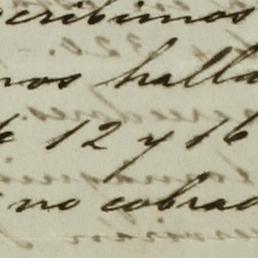 cribimos
nos halla
e 12 y 16
no cobrad